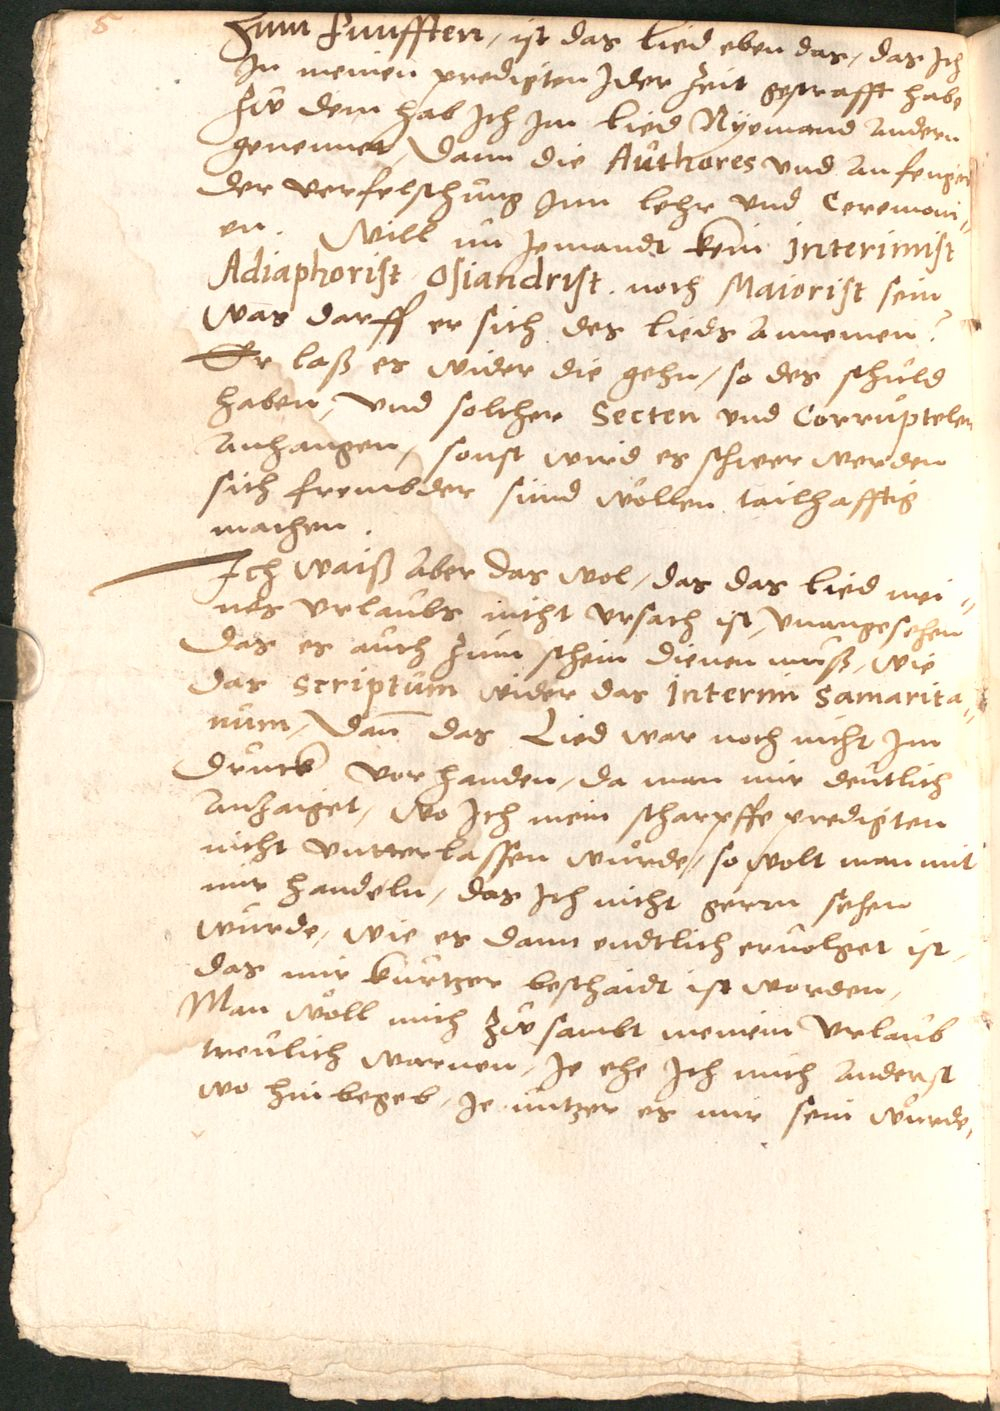 5
Zum Funfften, ist das Lied eben das, das Ich
In meinen predigten Jder Zeit gestrafft habe
Zů dem hab Ich Im Lied Nyemand Andern
genennet, Dann die Authores vnd Anfenger
der verfelschung Inn lehr vnd Ceremoni=
en. Will nů Jemandt kein Interimist
Adiaphorist Osiandrist. noch Maiorist sein
was darff er sich des lieds Annemen?
Er laß es wider die gehn, so des schuld
haben, vnd solcher Secten vnd Corruptelen
Anhangen, sonst wird es schwer werden
sich frembder sünd wöllen tailhafftig
machen.
Ich waiß Aber das wol, das das lied mei=
nes vrlaubs nicht vrsach ist, vnangesehen
Das es auch zum schein dienen muß, wie
das Scriptum wider das Interim Samarita=
num, Dañ das Lied war noch nicht Im
Druck vorhanden, da man mir deutlich
Anzaiget, wo Ich mein scharpffe predigten
nicht vnterlassen würde, so wolt man mit
mir handeln, das Ich nicht gern sehen
würde, wie es dann endtlich eruolget ist,
das mir kurtzer beschaidt ist worden,
Man wöll mich zů sambt meinem Vrlaub
treulich warnen, Je ehe Ich mich anderst
wo hin begeb, Je nutzer es mir sein würde,